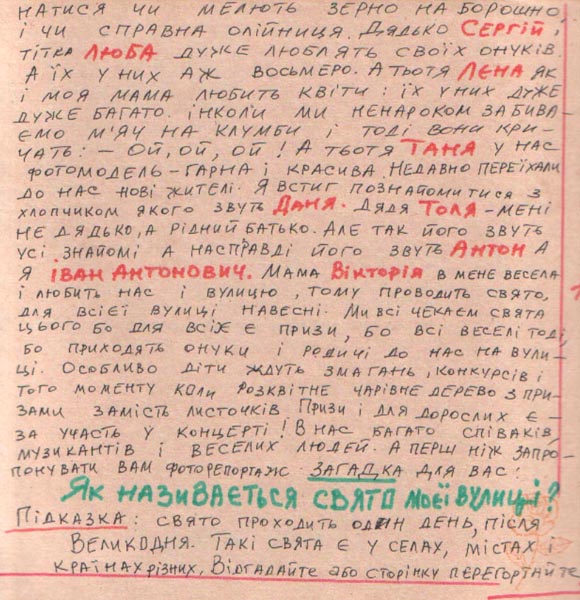 НАТИСЯ ЧИ МЕЛЮТЬ ЗЕРНО НА БОРОШНО,
І ЧИ СПРАВНА ОЛІЙНИЦЯ. ДЯДЬКО СЕРГІЙ І
ТІТКА ЛЮБА ДУЖЕ ЛЮБЛЯТЬ СВОЇХ ОНУКІВ.
А ЇХ У НИХ АЖ ВОСЬМЕРО. А ТЬОТЯ ЛЄНА ЯК
І МОЯ МАМА ЛЮБИТЬ КВІТИ: ЇХ У НИХ ДУЖЕ
ДУЖЕ БАГАТО. ІНКОЛИ МИ НЕНАРОКОМ ЗАБИВА-
ЄМО М'ЯЧ НА КЛУМБИ І ТОДІ ВОНИ КРИ-
ЧАТЬ: - ОЙ, ОЙ, ОЙ! А ТЬОТЯ ТАНЯ У НАС
ФОТОМОДЕЛЬ - ГАРНА І КРАСИВА. НЕДАВНО ПЕРЕЇХАЛИ
ДО НАС НОВІ ЖИТЕЛІ. Я ВСТИГ ПОЗНАЙОМИТИСЯ З
ХЛОПЧИКОМ ЯКОГО ЗВУТЬ ДАНЯ. ДЯДЯ ТОЛЯ - МЕНІ
НЕ ДЯДЬКО, А РІДНИЙ БАТЬКО. АЛЕ ТАК ЙОГО ЗВУТЬ
УСІ ЗНАЙОМІ А НАСПРАВДІ ЙОГО ЗВУТЬ АНТОН А
Я ІВАН АНТОНОВИЧ. МАМА ВІКТОРІЯ В МЕНЕ ВЕСЕЛА
І ЛЮБИТЬ НАС І ВУЛИЦЮ, ТОМУ ПРОВОДИТЬ СВЯТО,
ДЛЯ ВСІЄЇ ВУЛИЦІ НАВЕСНІ. МИ ВСІ ЧЕКАЄМ СВЯТА
ЦЬОГО БО ДЛЯ ВСІХ Є ПРИЗИ, БО ВСІ ВЕСЕЛІ ТОДІ,
БО ПРИХОДЯТЬ ОНУКИ І РОДИЧІ ДО НАС НА ВУЛИ-
ЦІ. ОСОБЛИВО ДІТИ ЖДУТЬ ЗМАГАНЬ, КОНКУРСІВ І
ТОГО МОМЕНТУ КОЛИ РОЗКВІТНЕ ЧАРІВНЕ ДЕРЕВО З ПРИ-
ЗАМИ ЗАМІСТЬ ЛИСТОЧКІВ ПРИЗИ І ДЛЯ ДОРОСЛИХ Є -
ЗА УЧАСТЬ У КОНЦЕРТІ! В НАС БАГАТО СПІВАКІВ,
МУЗИКАНТІВ І ВЕСЕЛИХ ЛЮДЕЙ. А ПЕРШ НІЖ ЗАПРО-
ПОНУВАТИ ВАМ ФОТОРЕПОРТАЖ - ЗАГАДКА ДЛЯ ВАС:
ЯК НАЗИВАЄТЬСЯ СВЯТО МОЄЇ ВУЛИЦІ?
ПІДКАЗКА: СВЯТО ПРОХОДИТЬ ОДИН ДЕНЬ, ПІСЛЯ
ВЕЛИКОДНЯ. ТАКІ СВЯТА Є У СЕЛАХ, МІСТАХ І
КРАЇНАХ РІЗНИХ. ВІДГАДАЙТЕ АБО СТОРІНКУ ПЕРЕГОРТАЙТЕ